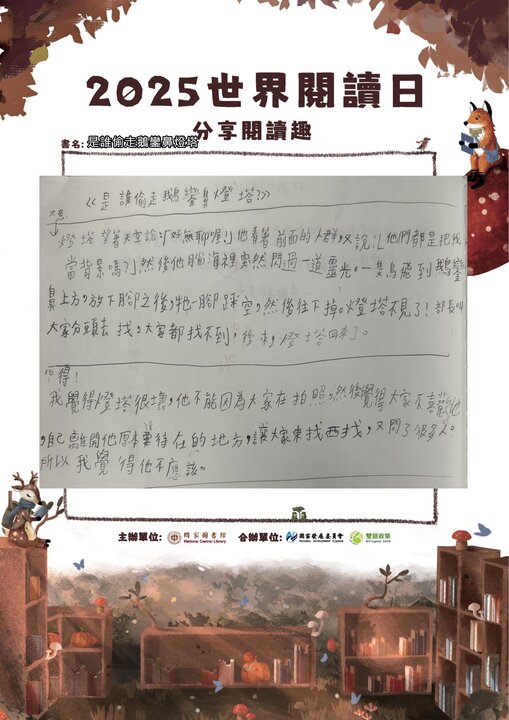 2025世界閱讀日
分享閱讀趣
書名: 是誰偷走鵝鑾鼻燈塔
《是誰偷走鵝鑾鼻燈塔?》
大意
燈塔望著天空說:「好無聊喔!」他看著前面的人群,又說:「他們都是把我
當背景嗎?」然後他腦海裡突然閃過一道靈光。一隻鳥飛到鵝鑾
鼻上方,放下腳之後,牠一腳踩空,然後往下掉。燈塔不見了!部長叫
大家分頭去找,大家都找不到,後來,燈塔回來了。
心得:
我覺得燈塔很壞,他不能因為大家在拍照,然後覺得大家不喜歡他
,自己離開他原本要待在的地方,讓大家東找西找,又問了很多人。
所以我覺得他不應該。
主辦單位: 國家圖書館 National Central Library 合辦單位: 國家發展委員會 NATIONAL DEVELOPMENT COUNCIL 雙語政策 Bilingual 2030